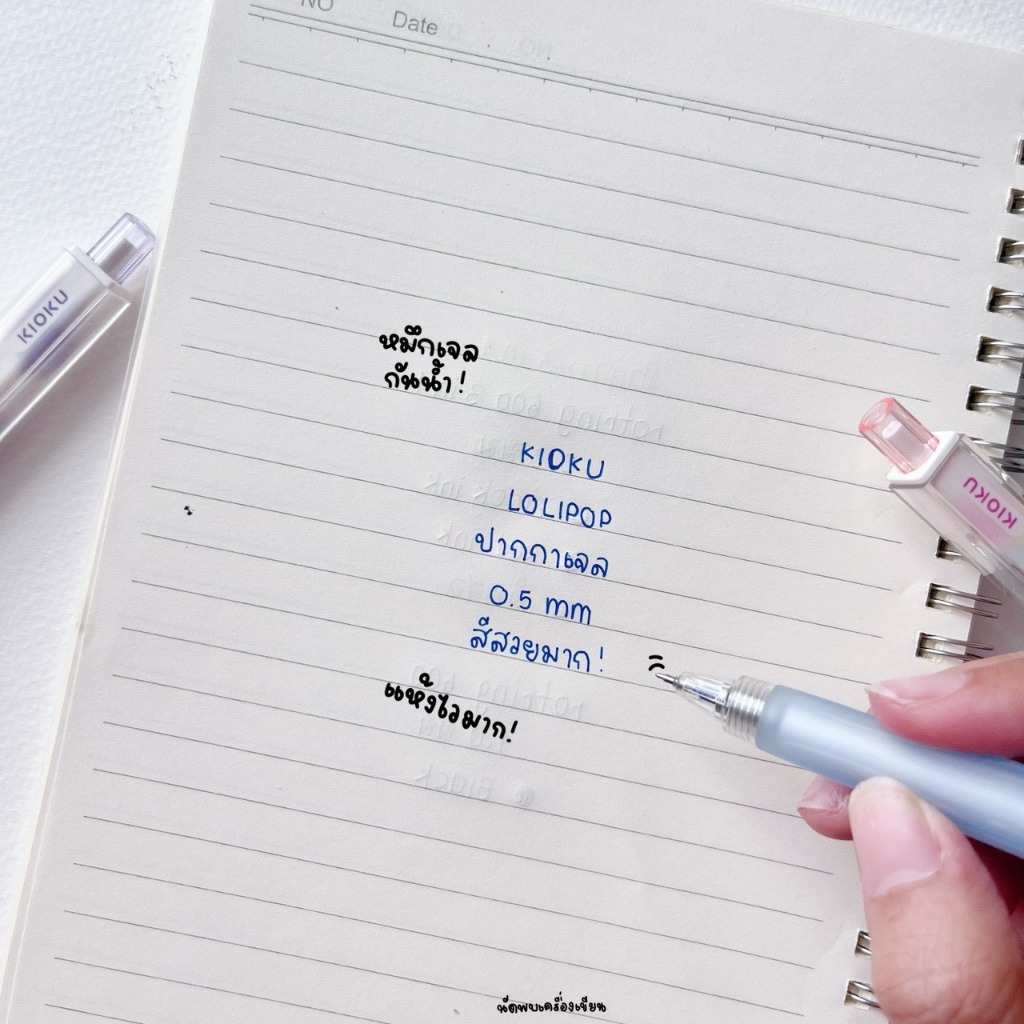 NO Date
KIOKU
หมึกเจล
กันน้ำ!
KIOKU
LOLIPOP
ปากกาเจล
0.5 mm
สีสวยมาก!
KIOKU
แห้งไวมาก!
นัดพบเครื่องเขียน